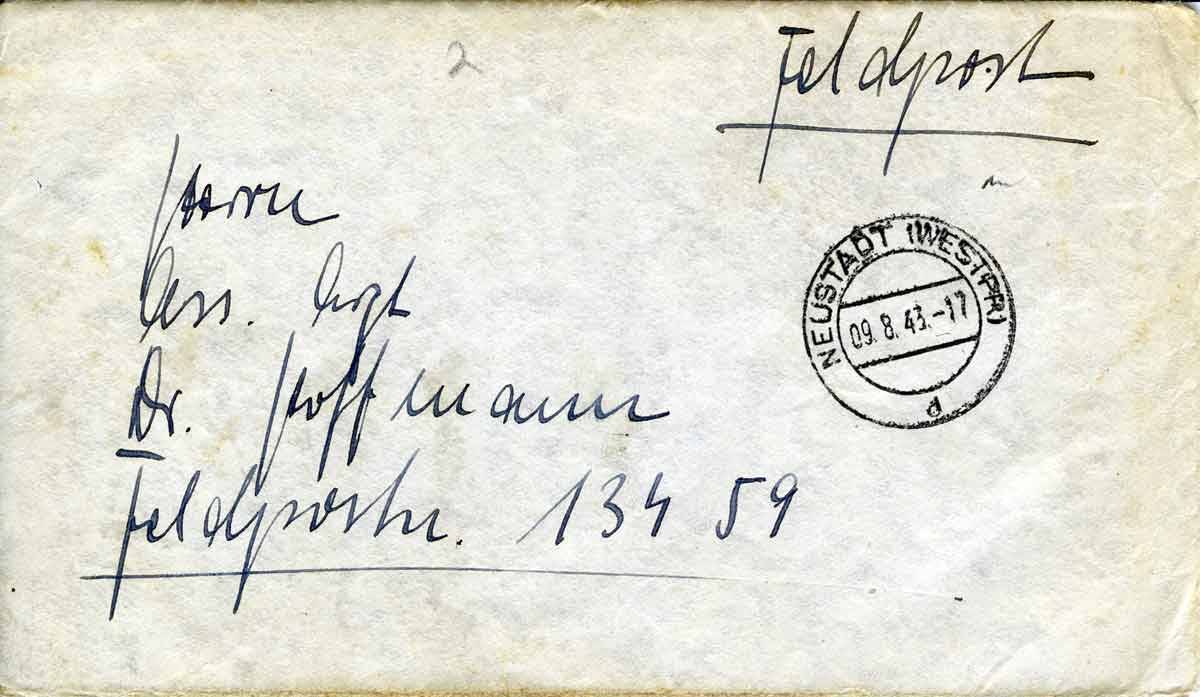 2
Feldpost
Herrn
Ass. Arzt
Dr. Hoffmann
Feldpostnr. 134 59
NEUSTADT (WESTPR)
09.8.43.-17